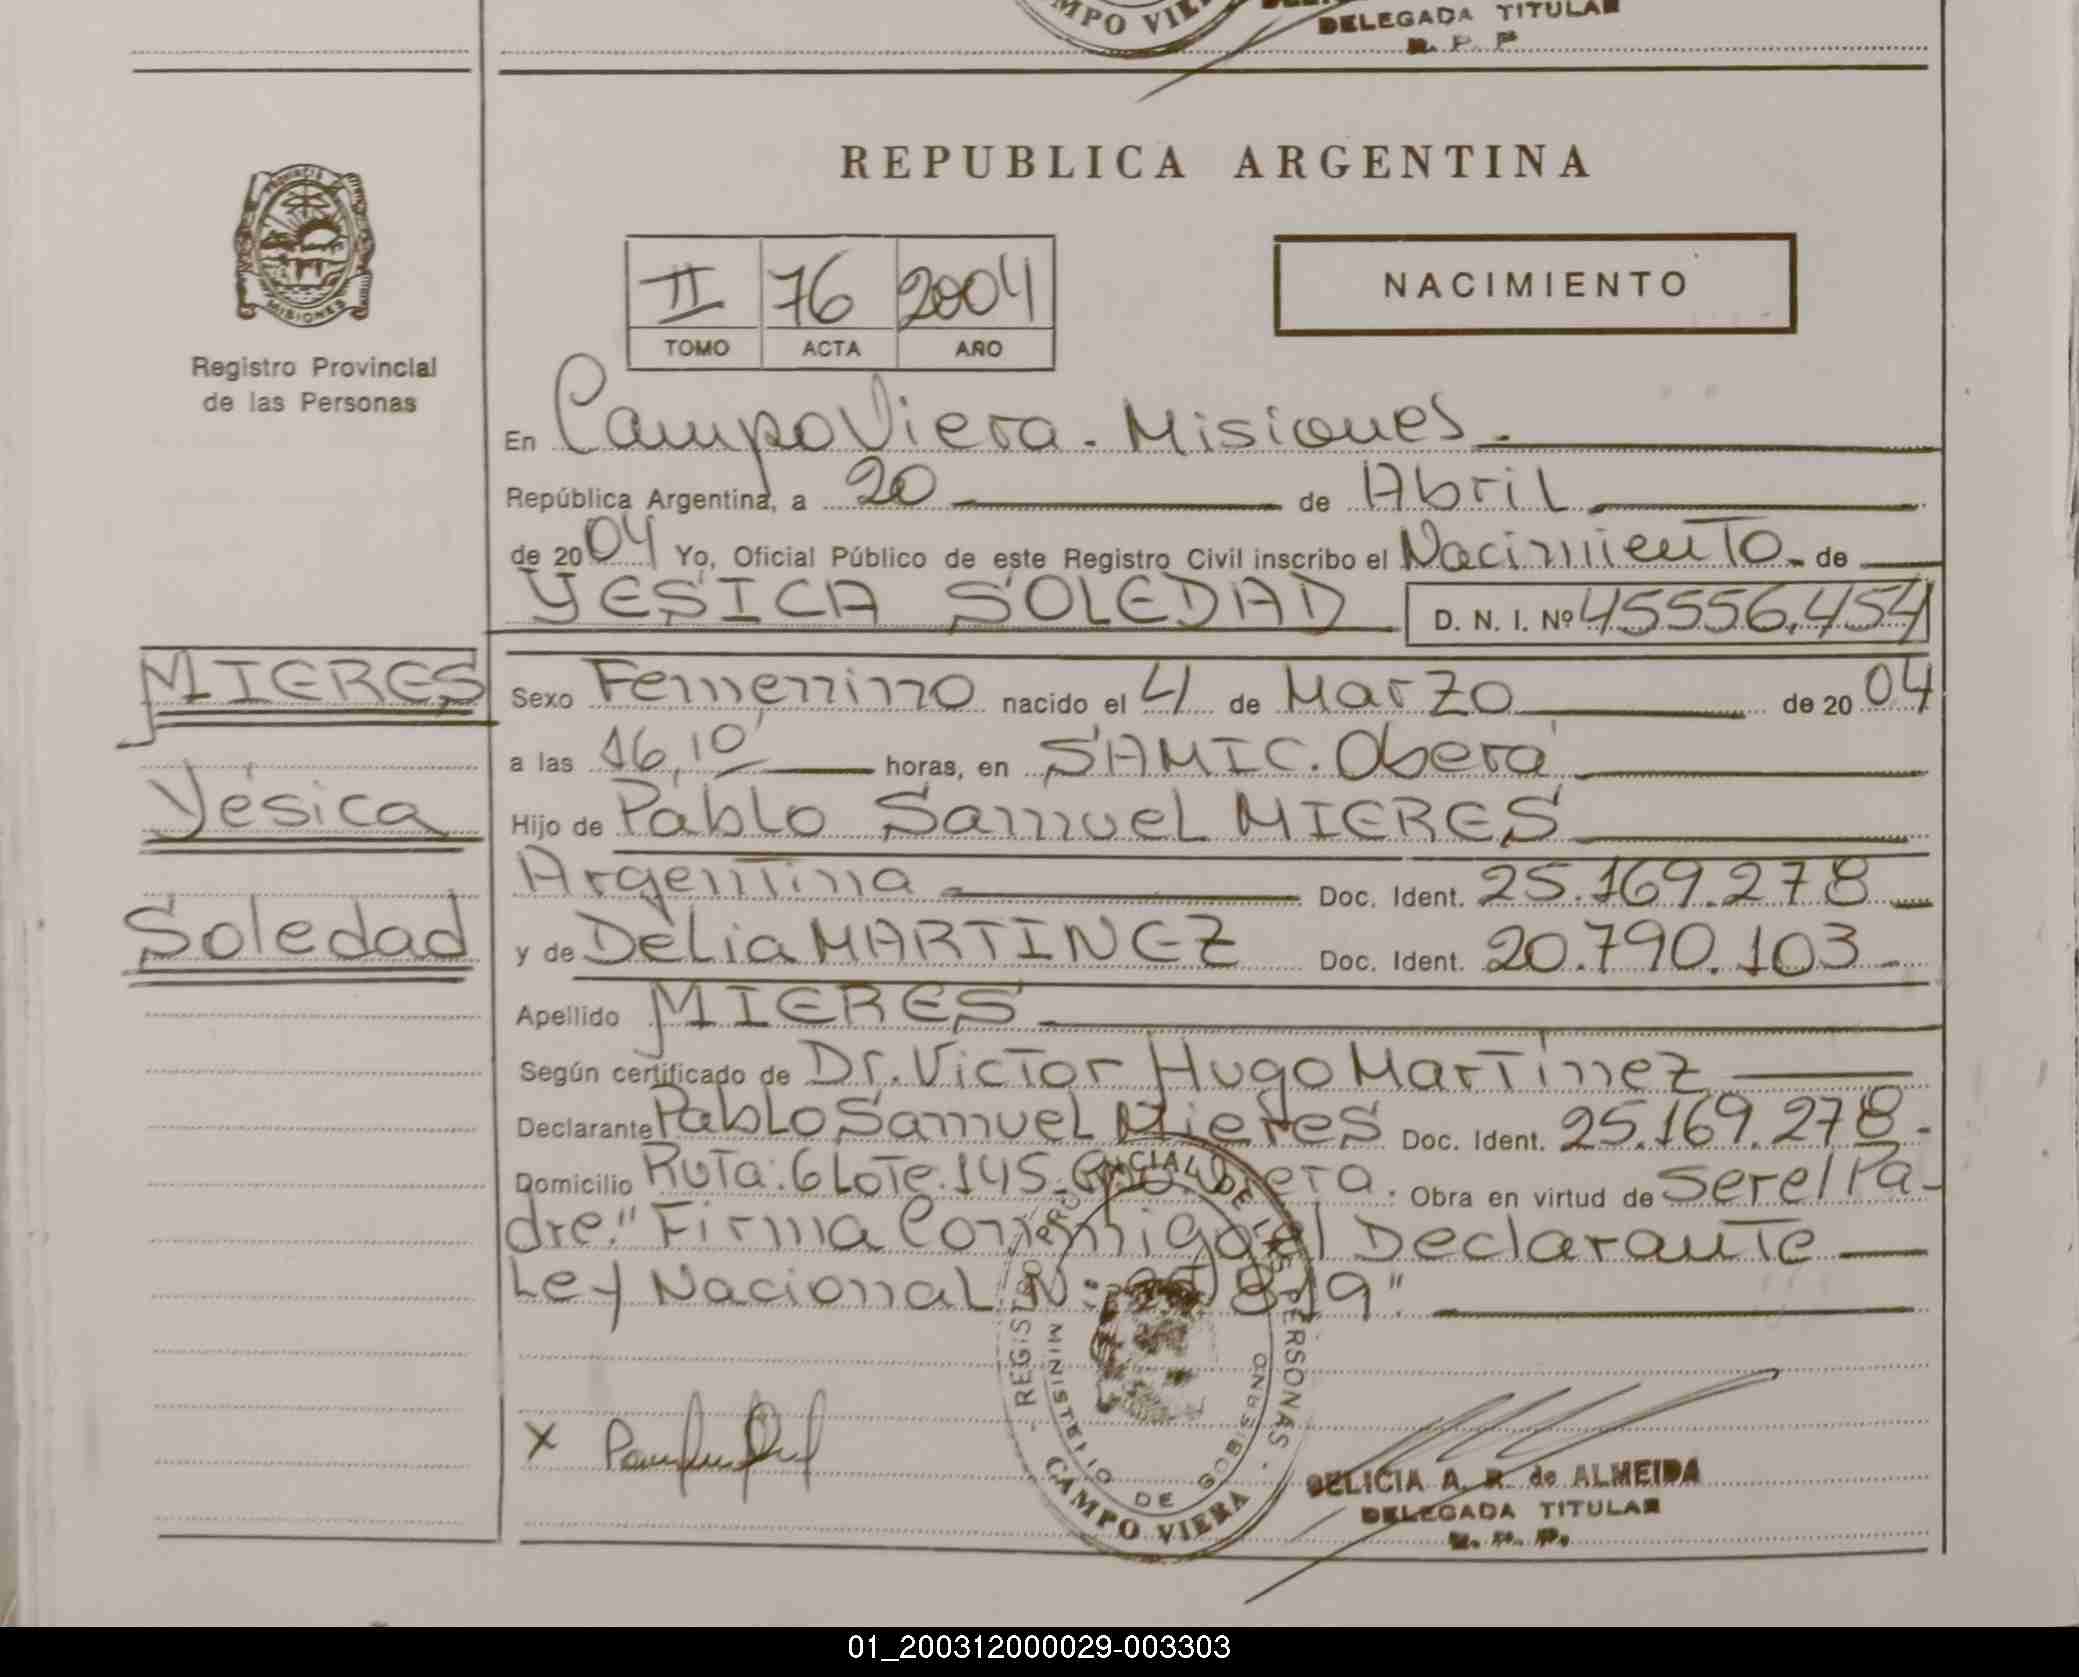 DELEGADA TITULAR
R. P. P
CAMPO VIERA
REPUBLICA ARGENTINA
PROVINCIA DE MISIONES
II 76 2004
TOMO ACTA AÑO
NACIMIENTO
Registro Provincial
de las Personas
En Campo Viera. Misiones.
República Argentina, a 20 de Abril
de 2004 Yo, Oficial Público de este Registro Civil inscribo el Nacimiento de
YESICA SOLEDAD D. N. I. Nº 45556.454
MIERES
Yésica
Soledad
Sexo Femenino nacido el 4 de Marzo de 2004
a las 16,10 horas, en SAMIC. Oberá
Hijo de Pablo Samuel MIERES
Argentina Doc. Ident. 25.169.278
y de Delia MARTINEZ Doc. Ident. 20.790.103
Apellido MIERES
Según certificado de Dr. Victor Hugo Martinez
Declarante Pablo Samuel Mieres Doc. Ident. 25.169.278.
Domicilio Ruta: 6 Lote. 145. Viera. Obra en virtud de ser el Pa-
dre." Firma Conmigo el Declarante
Ley Nacional N: 819"
REGISTRO PROVINCIAL DE LAS PERSONAS
MINISTERIO DE GOBIERNO
CAMPO VIERA
X
DELICIA A. R. de ALMEIDA
DELEGADA TITULAR
R. P. P.
01_200312000029-003303